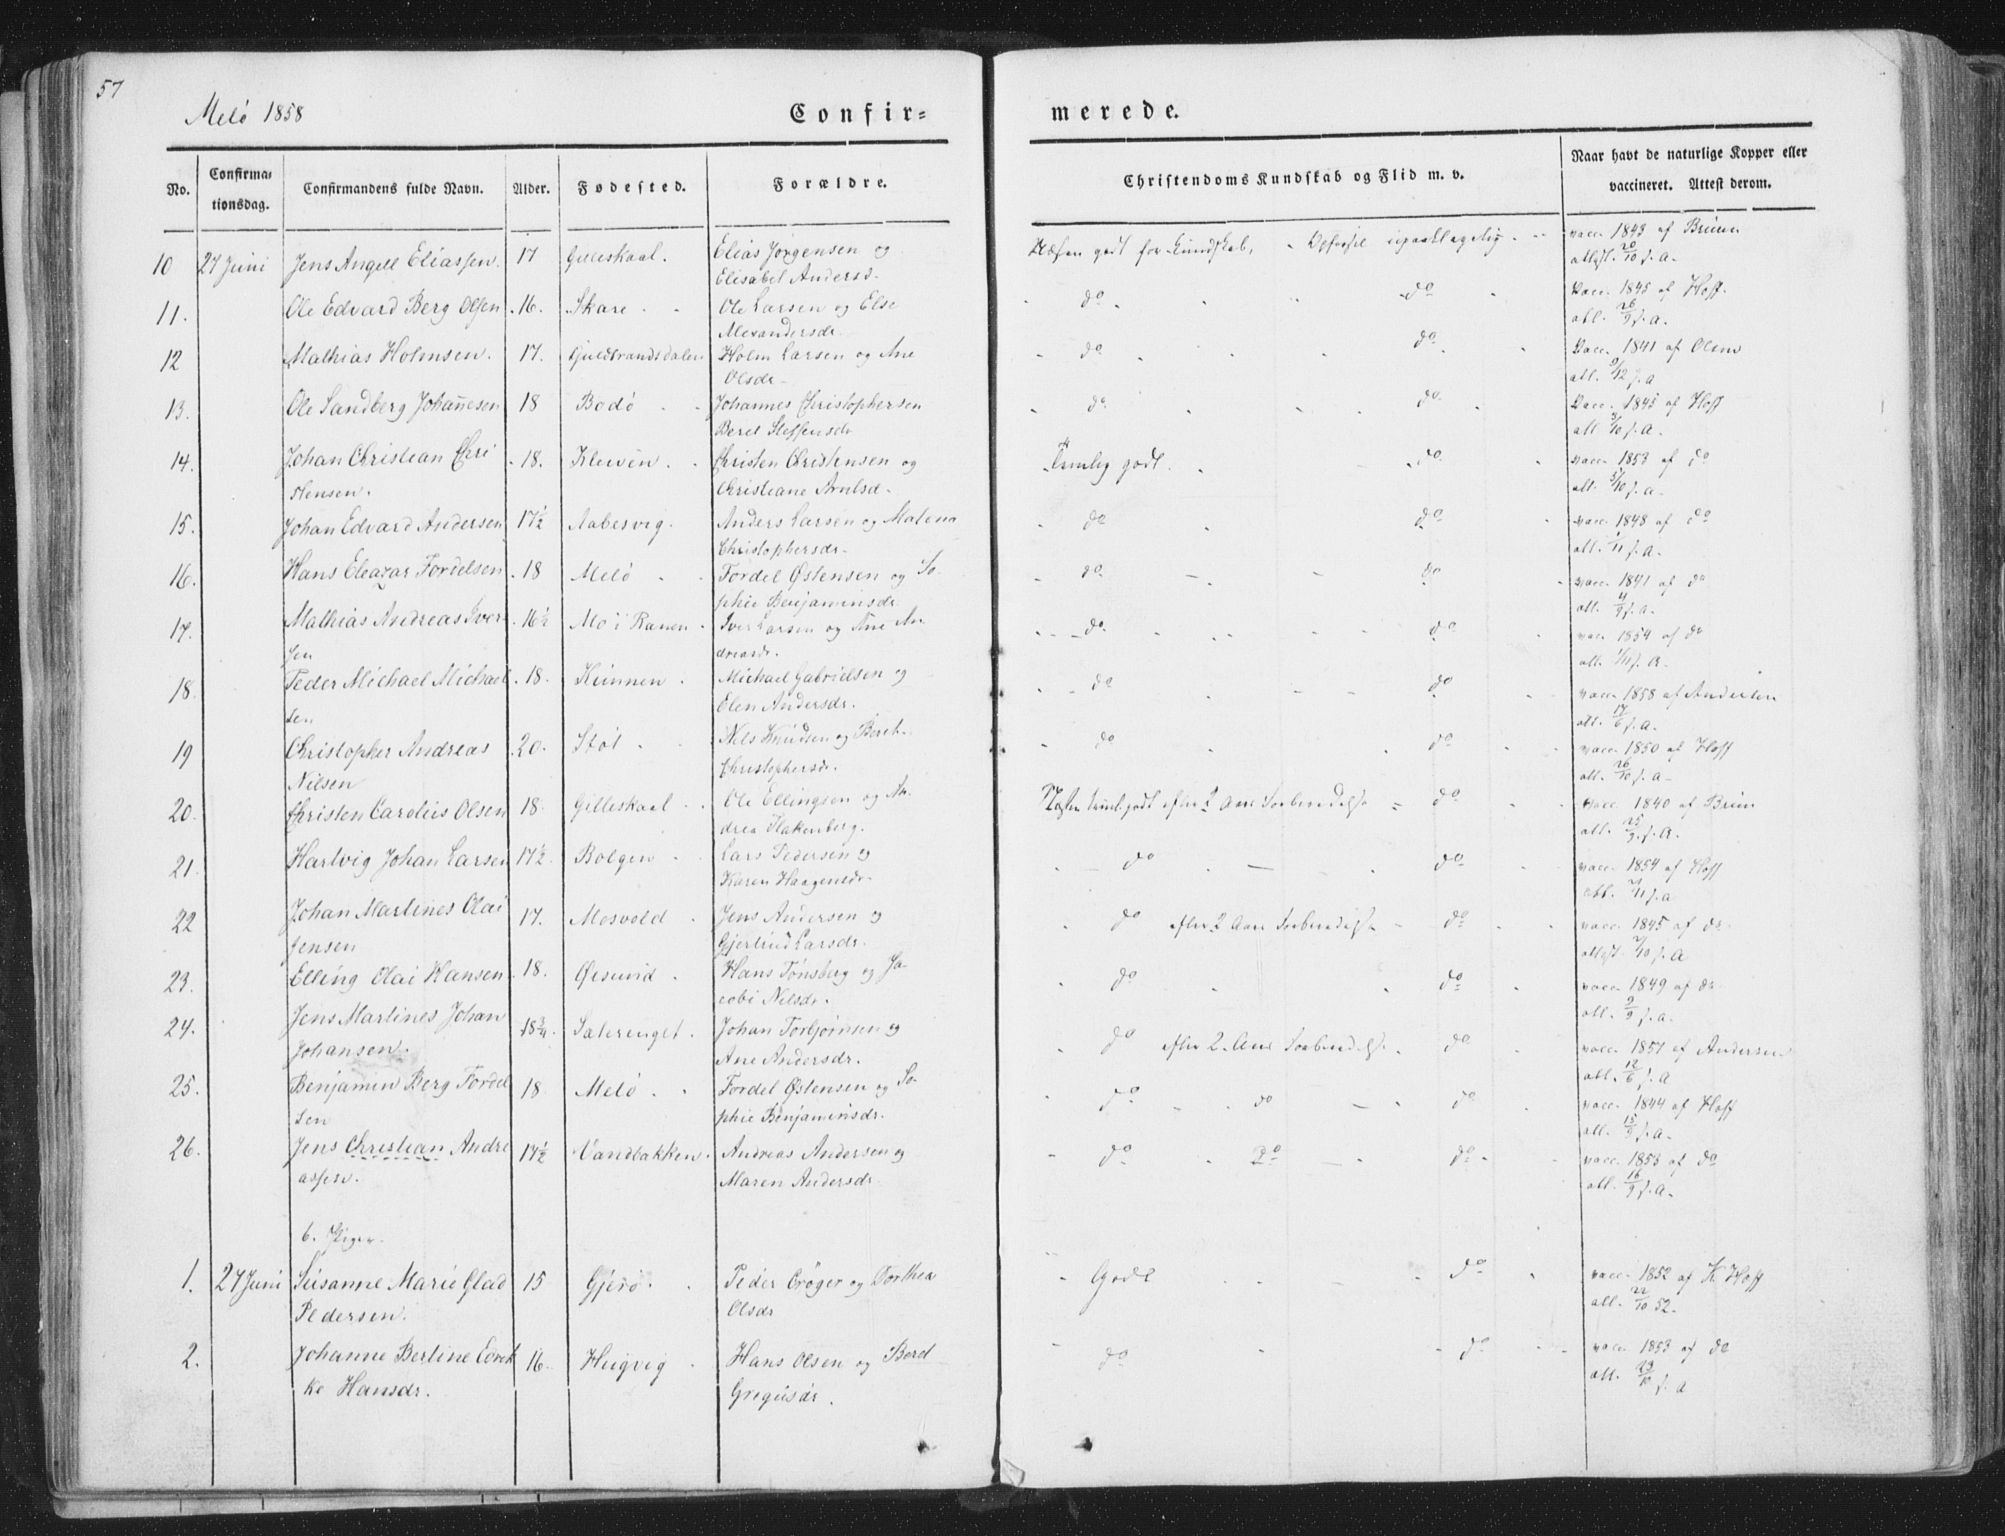 57
Melö 1858
Confir-
merede.
No.
Confirma-
tionsdag.
Confirmandens fulde Navn.
Alder.
Fødested.
Forældre.
Christendoms Kundskab og Flid m. v.
Naar havt de naturlige Kopper eller
vaccineret. Attest derom.
10 27 Juni Jens Angell Eliassen. 17 Gilleskaal. Elias Jörgensen og
Elisabet Andersd.
Næsten godt for Kundskab, Opførsel upaaklagelig.
vacc. 1843 af Bruun
attest. 20/10 s. a.
11. Ole Edvard Berg Olsen 16. Skare Ole Larsen og Else
Alexandersdr.
do do
Vacc. 1845 af Hoff.
att. 26/9 s. a.
12 Mathias Holmsen. 17. Guldbrandsdalen Holm Larsen og Ane
Olsdr
do do
Vacc. 1841 af Olsen
att. 9/12 s. a
13. Ole Sandberg Johannesen 18 Bodö Johannes Christophersen
Beret Steffensdr
do do
Vacc. 1843 af Hoff
att 3/10 s. a.
14. Johan Christian Chri
stensen. 18. Kleiven Christen Christensen og
Christiane Arntsd.
Temlig godt. do
vacc. 1853 af do
att. 5/10 s. a.
15. Johan Edvard Andersen 17½ Aabesvig. Anders Larsen og Malena
Christophersdr.
do do
vacc. 1848 af do
att. 1/11 s. a.
16. Hans Eleazar Tordelsen 18 Melö Tordel Østensen og So-
phie Benjaminsdr.
do do
vacc. 1841 af do
att. 4/9 s. a.
17. Mathias Andreas Iver-
sen 16½ Mo i Ranen Iver Larsen og Ane An
dreasdr.
do do
vacc. 1854 af do
att. 1/11 s. a.
18. Peder Michael Michael
sen 18. Kunnen Michael Gabrielsen og
Elen Andersdr.
do do
vacc. 1858 af Andersen
att. 17/6 s. a.
19 Christopher Andreas
Nilsen 20. Stöt Nils Knudsen og Beret
Christophersdr.
do do
vacc. 1850 af Hoff
att. 26/10 s. a.
20. Christen Carolius Olsen 18. Gilleskaal Ole Ellingsen og An
drea Flakenberg.
Næsten teml. godt efter 2 Aars Forberedelse do
vacc. 1840 af Bruun
att. 25/9 s. a.
21. Hartvig Johan Larsen 17½ Bolgen Lars Pedersen og
Karen Haagensdr.
do do
vacc. 1854 af Hoff
att. 7/11 s. a
22 Johan Martines Olai
Jensen 17. Mosvold Jens Andersen og
Gjertrud Larsdr.
do efter 2 Aars Forberedelse do
vacc. 1845 af do
attest. 7/10 s. a
23. Elling Olai Hansen 18. Øresvid Hans Tönsberg og Ja-
cobi Nilsdr.
do do
vacc. 1849 af do
att. 9/9 s. a.
24. Jens Martines Johan
Johansen. 18¾. Saterenget. Johan Torbjörnsen og
Ane Andersdr.
do efter 2 Aars Forberedelse do
vacc. 1857 af Andersen
att. 12/6 s. a
25. Benjamin Berg Tordel
sen 18 Melö Tordel Østensen og So-
phie Benjaminsdr.
do do do
vacc. 1844 af Hoff
att. 15/9 s. a.
26. Jens Christian Andre
assen. 17½ Vandbakken. Andreas Andersen og
Maren Andersdr.
do do do
vacc. 1853 af do
att. 16/9 s. a.
b. Piger.
1. 27 Juni Susanne Marie Glad
Pedersen. 15 Gjerö. Peder Cröger og Dorthea
Olsdr
Godt do
vacc. 1852 af K. Hoff
att. 22/10 52.
2. Johanne Bertine Edvik
ke Hansdr. 16. Hugvig Hans Olsen og Berel
Gregusdr.
do do
vacc. 1853 af do
att. 29/10 s. a